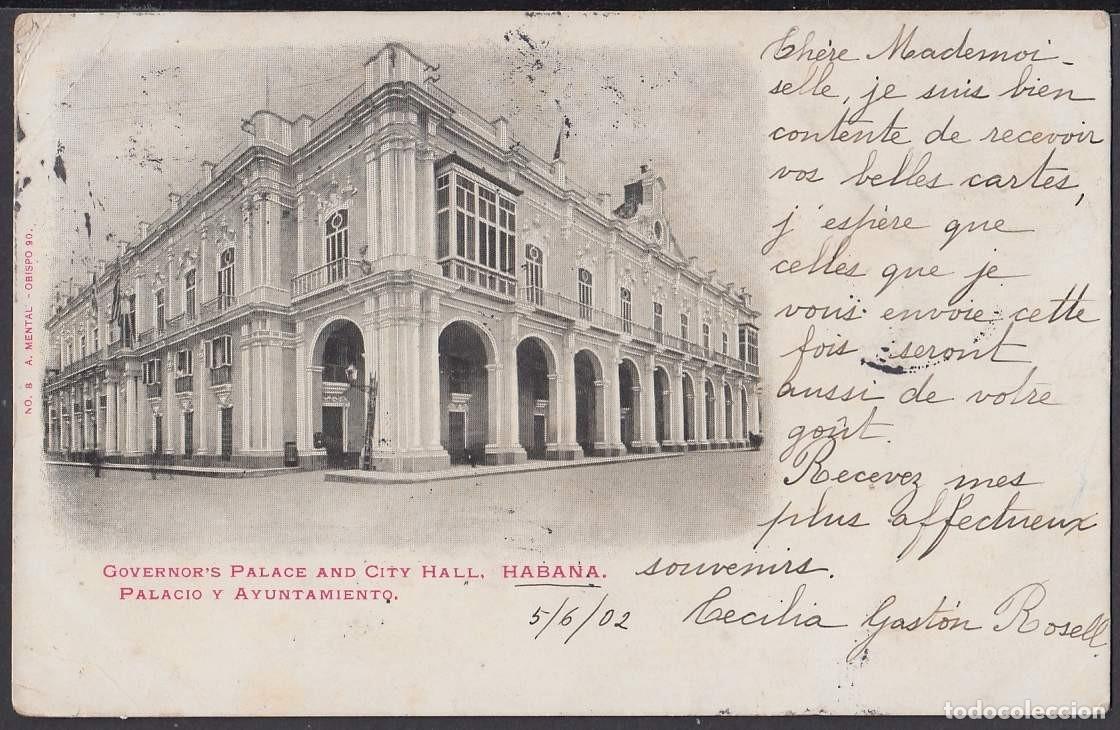 Chère Mademoi-
selle, je suis bien
contente de recevoir
vos belles cartes,
j'espère que
celles que je
vous envoie cette
fois seront
aussi de votre
goût.
Recevez mes
plus affectueux
souvenirs.
Cecilia Gastón Rosell
5/6/02
GOVERNOR'S PALACE AND CITY HALL, HABANA.
PALACIO Y AYUNTAMIENTO.
NO. 8 A. MENTAL - OBISPO 90.
todocoleccion